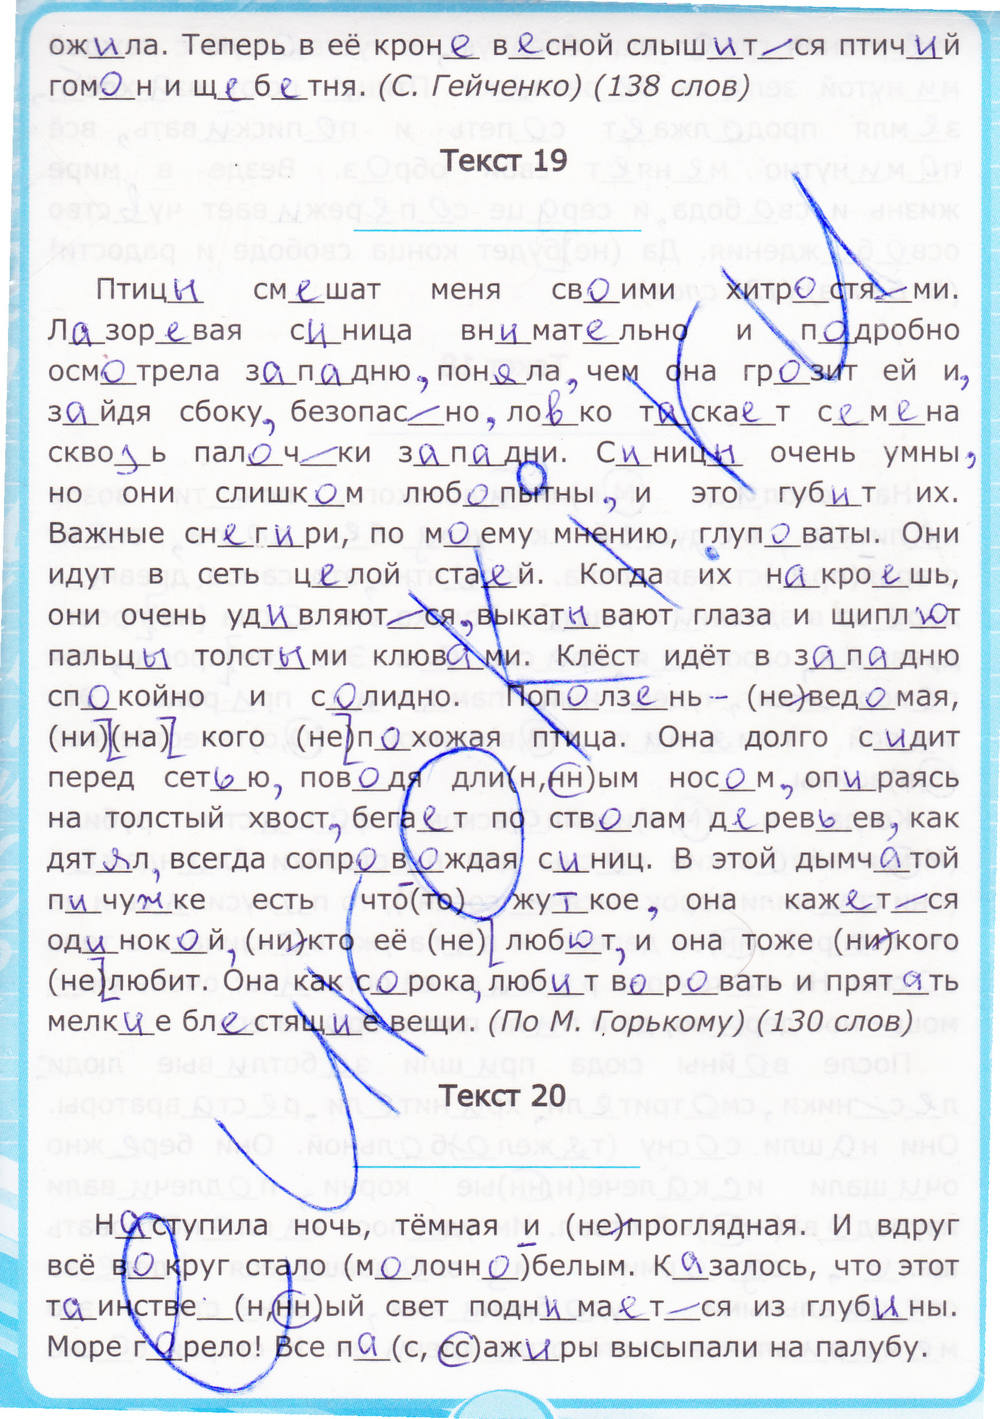 ожила. Теперь в её кроне весной слышится птичий
гомон и щебетня. (С. Гейченко) (138 слов)
Текст 19
Птицы смешат меня своими хитростями.
Лазоревая синица внимательно и подробно
осмотрела западню, поняла, чем она грозит ей и,
зайдя сбоку, безопасно, ловко таскает семена
сквозь палочки западни. Синицы очень умны,
но они слишком любопытны, и это губит их.
Важные снегири, по моему мнению, глуповаты. Они
идут в сеть целой стаей. Когда их накроешь,
они очень удивляются, выкатывают глаза и щиплют
пальцы толстыми клювами. Клёст идёт в западню
спокойно и солидно. Поползень – (не)ведомая,
(ни)(на) кого (не) похожая птица. Она долго сидит
перед сетью, поводя дли(н,нн)ым носом, опираясь
на толстый хвост, бегает по стволам деревьев, как
дятел, всегда сопровождая синиц. В этой дымчатой
пичужке есть что(то) жуткое, она кажется
одинокой, (ни)кто её (не) любит, и она тоже (ни)кого
(не)любит. Она как сорока, любит воровать и прятать
мелкие блестящие вещи. (По М. Горькому) (130 слов)
Текст 20
Наступила ночь, тёмная и (не)проглядная. И вдруг
всё вокруг стало (молочно)белым. Казалось, что этот
таинстве(н,нн)ый свет поднимается из глубины.
Море горело! Все па(с, с)ажиры высыпали на палубу.